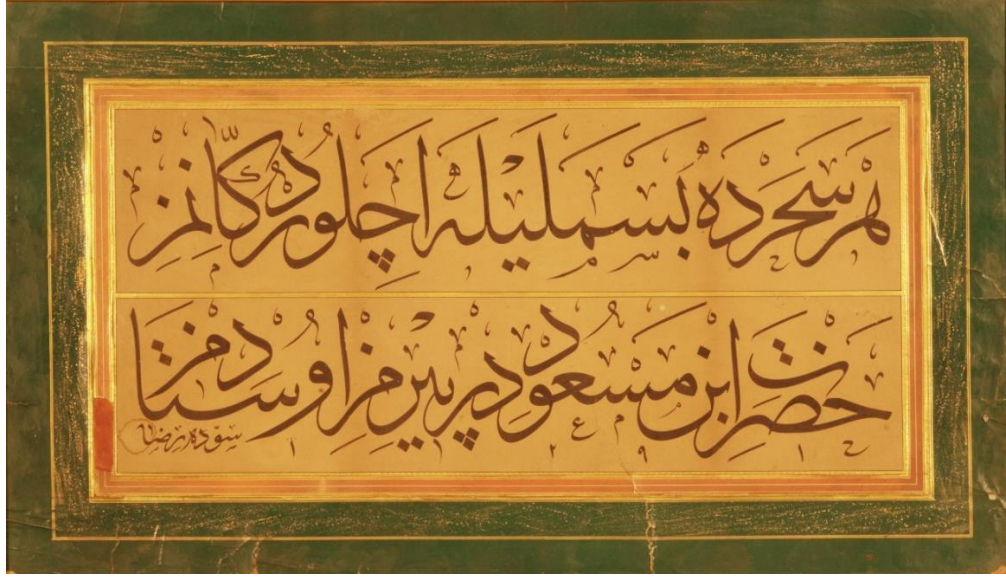 هر سحرده بسمليله اچلور دكانمز
حضرت ابن مسعوددر پيرمز اوستادمز
سوده رضا